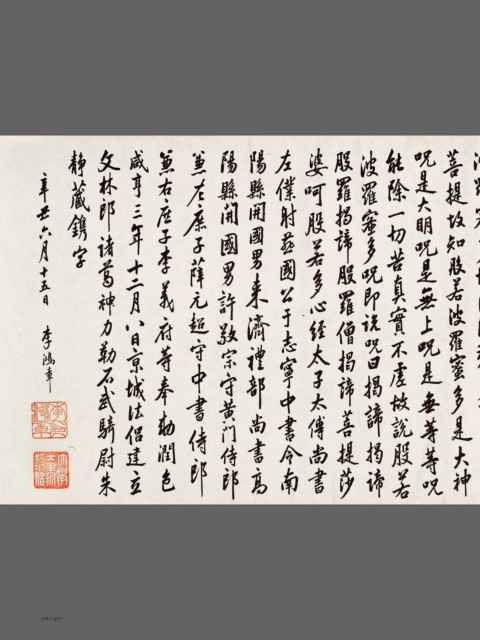 菩提故知般若波羅蜜多是大神
呪是大明呪是無上呪是無等等呪
能除一切苦真實不虛故說般若
波羅蜜多呪即說呪曰揭諦揭諦
般羅揭諦般羅僧揭諦菩提莎
婆呵般若多心經太子太傅尚書
左僕射燕國公于志寧中書令南
陽縣開國男来濟禮部尚書高
陽縣開國男許敬宗守黃門侍郎
兼左庶子薛元超守中書侍郎
兼右庶子李義府等奉勅潤色
咸亨三年十二月八日京城法侶建立
文林郎諸葛神力勒石武騎尉朱
靜藏鐫字
辛丑六月十五日 李鴻章